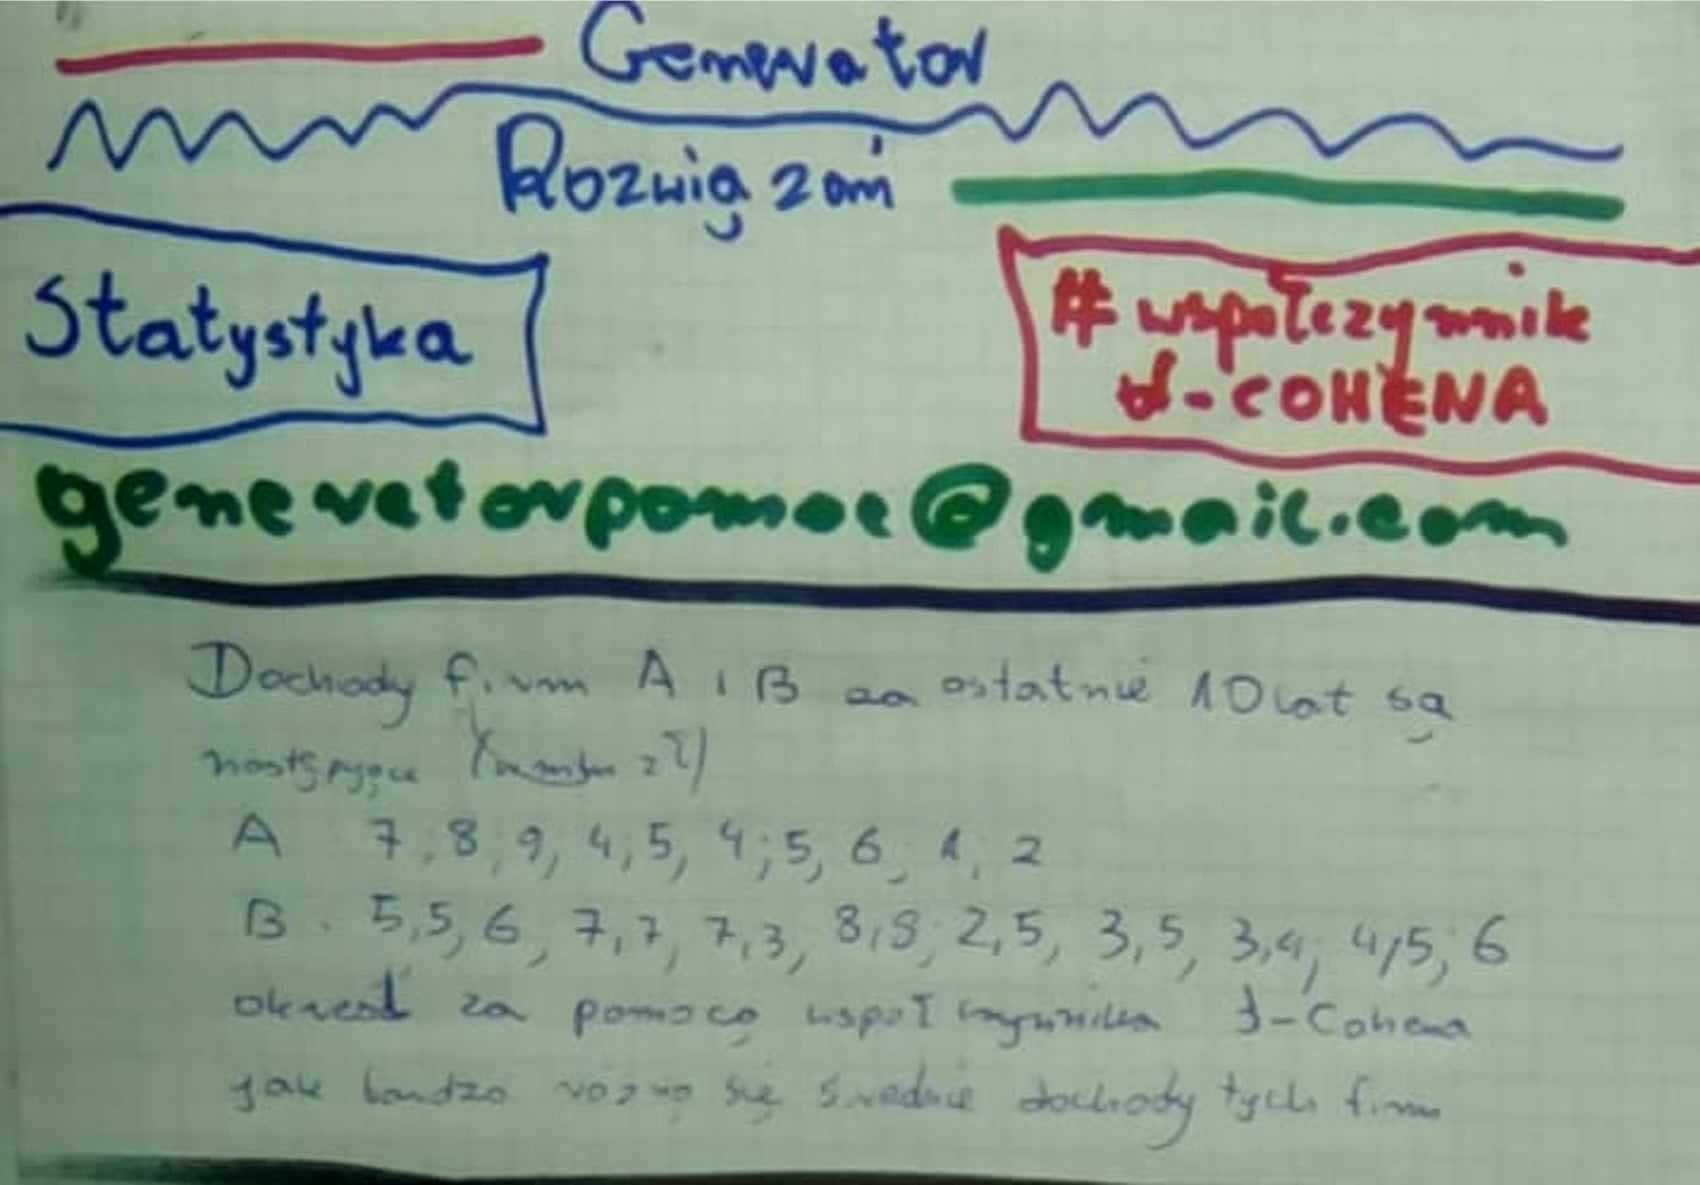 Generator
Rozwiązań
Statystyka
# współczynnik
d-COHENA
generatorpomoc@gmail.com
Dochody firm A i B za ostatnie 10 lat są
następujące zł)
A 7, 8, 9, 4, 5, 4; 5, 6, 1, 2
B. 5,5, 6, 7,7, 7,3, 8,8, 2,5, 3,5, 3,4, 4,5, 6
określ za pomocą współczynnika d-Cohena
jak bardzo różnią się średnie dochody tych firm